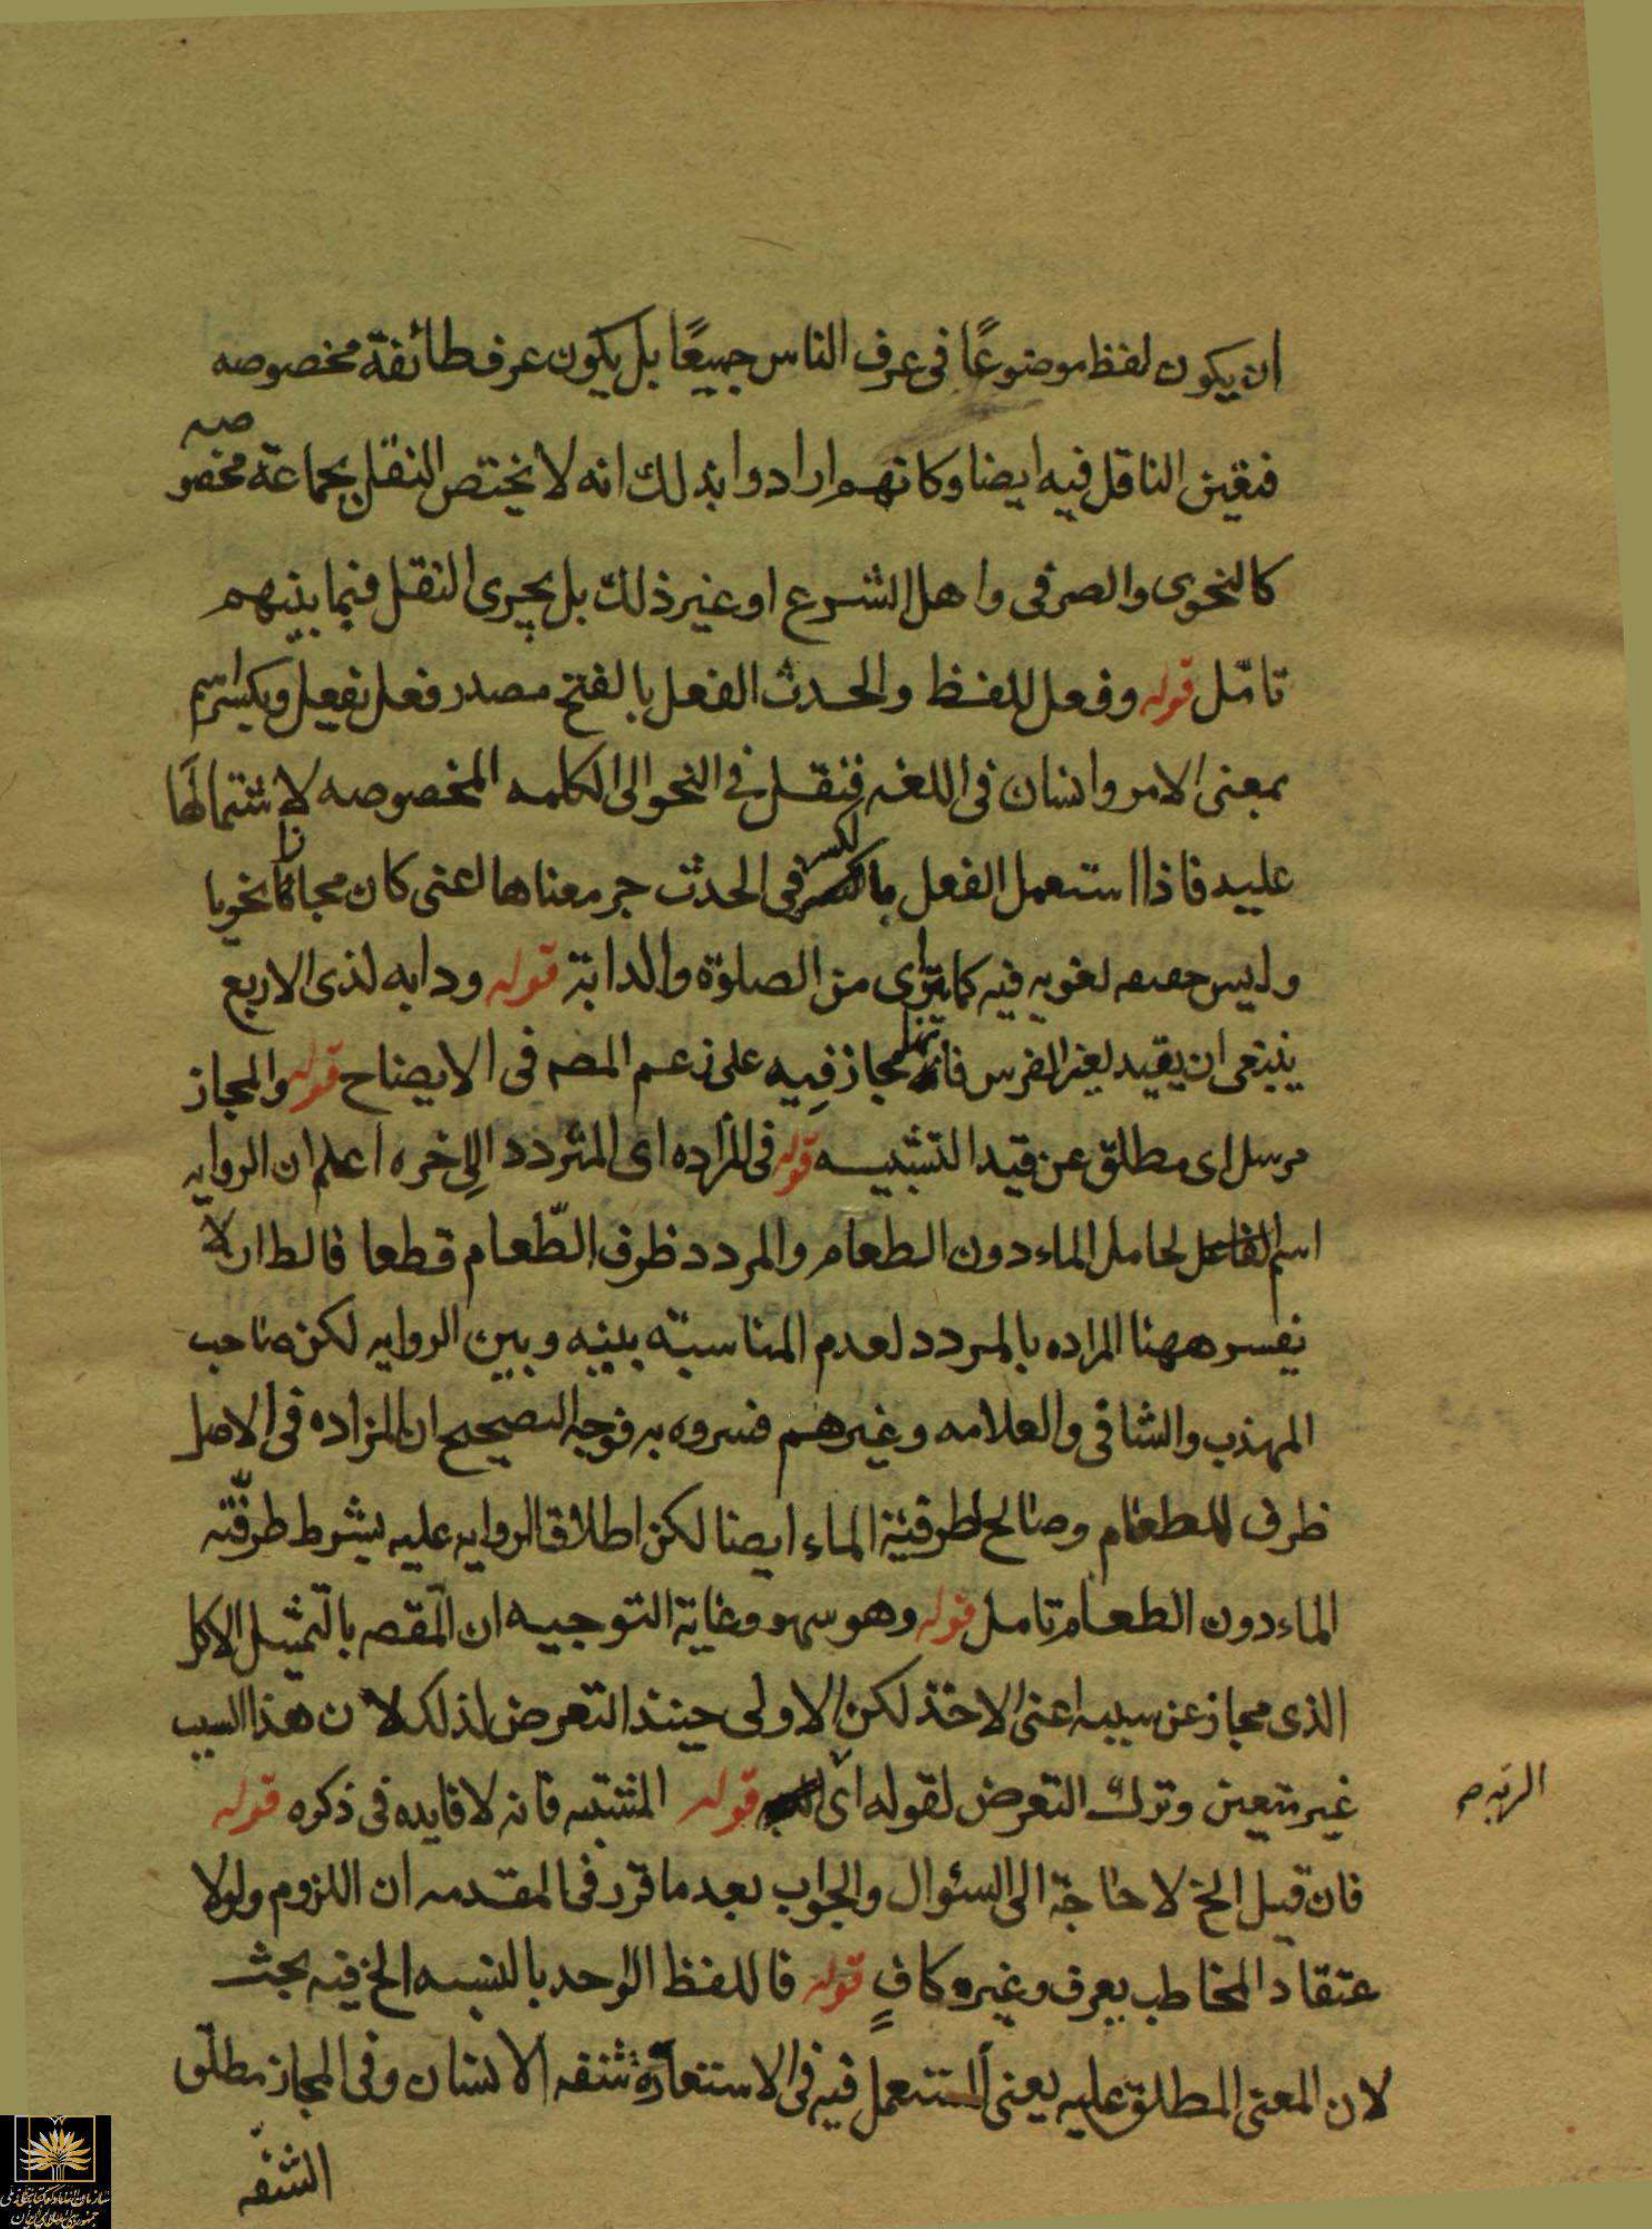 ان يكون لفظ موضوعًا فى عرف الناس جميعًا بل يكون عرف طائفة مخصوصه
فتعين الناقل فيه ايضا وكانهم ارادوا بذلك انه لا يختص النقل بجماعة مخصوصه
كالنحوى والصرفى واهل الشرع او غير ذلك بل يجرى النقل فيما بينهم
تامّل قوله وفعل للفظ والحدث الفعل بالفتح مصدر فعل يفعل وبكسر اسم
بمعنى الامر وانسان فى اللغه فنقل فى النحو الى الكلمه المخصوصه لاشتمالها
عليه فاذا استعمل الفعل بالكسر فى الحدث جر معناها اعنى كان مجازا نحويا
وليس حصصه لغويه فيه كما يترآى من الصلوة والدابة قوله ودابه لذى الاربع
ينبغى ان يقيد لغير الفرس فانها مجاز فيه على زعم المص فى الايضاح قوله والمجاز
مرسل اى مطلق عن قيد التشبيه قوله فى المزاده اى المتردد الى اخره اعلم ان الروايه
اسم لحامل الماء دون الطعام والمردد ظرف الطّعام قطعا فالظ ان لا
يفسر ههنا المزاده بالمردد لعدم المناسبة بينه وبين الروايه لكن صاحب
المهذب والشافى والعلامه وغيرهم فسروه به فوجه التصحيح ان المزاده فى الاصل
ظرف للطعام وصالح لظرفية الماء ايضا لكن اطلاق الروايه عليه بشرط ظرفيّته
الماء دون الطعام تامل قوله وهو سهو وغاية التوجيه ان المقص بالتمثيل الاكل
الذى مجاز عن سببه اعنى الاخذ لكن الاولى حينئذ التعرض لذلك لان هذا السبب
غير متعين وترك التعرض لقوله اى قوله المشبه فانه لا فايده فى ذكره قوله
فان قيل الخ لا حاجة الى السئوال والجواب بعد ما قرر فى المقدمه ان اللزوم ولولا
عتقاد المخاطب بعرف وغيره كافٍ قوله فاللفظ الواحد بالنسبه الخ فيه بحث
لان المعنى المطلق عليه يعنى المستعمل فيه فى الاستعارة شفه الانسان وفى المجاز مطلق
الشفه